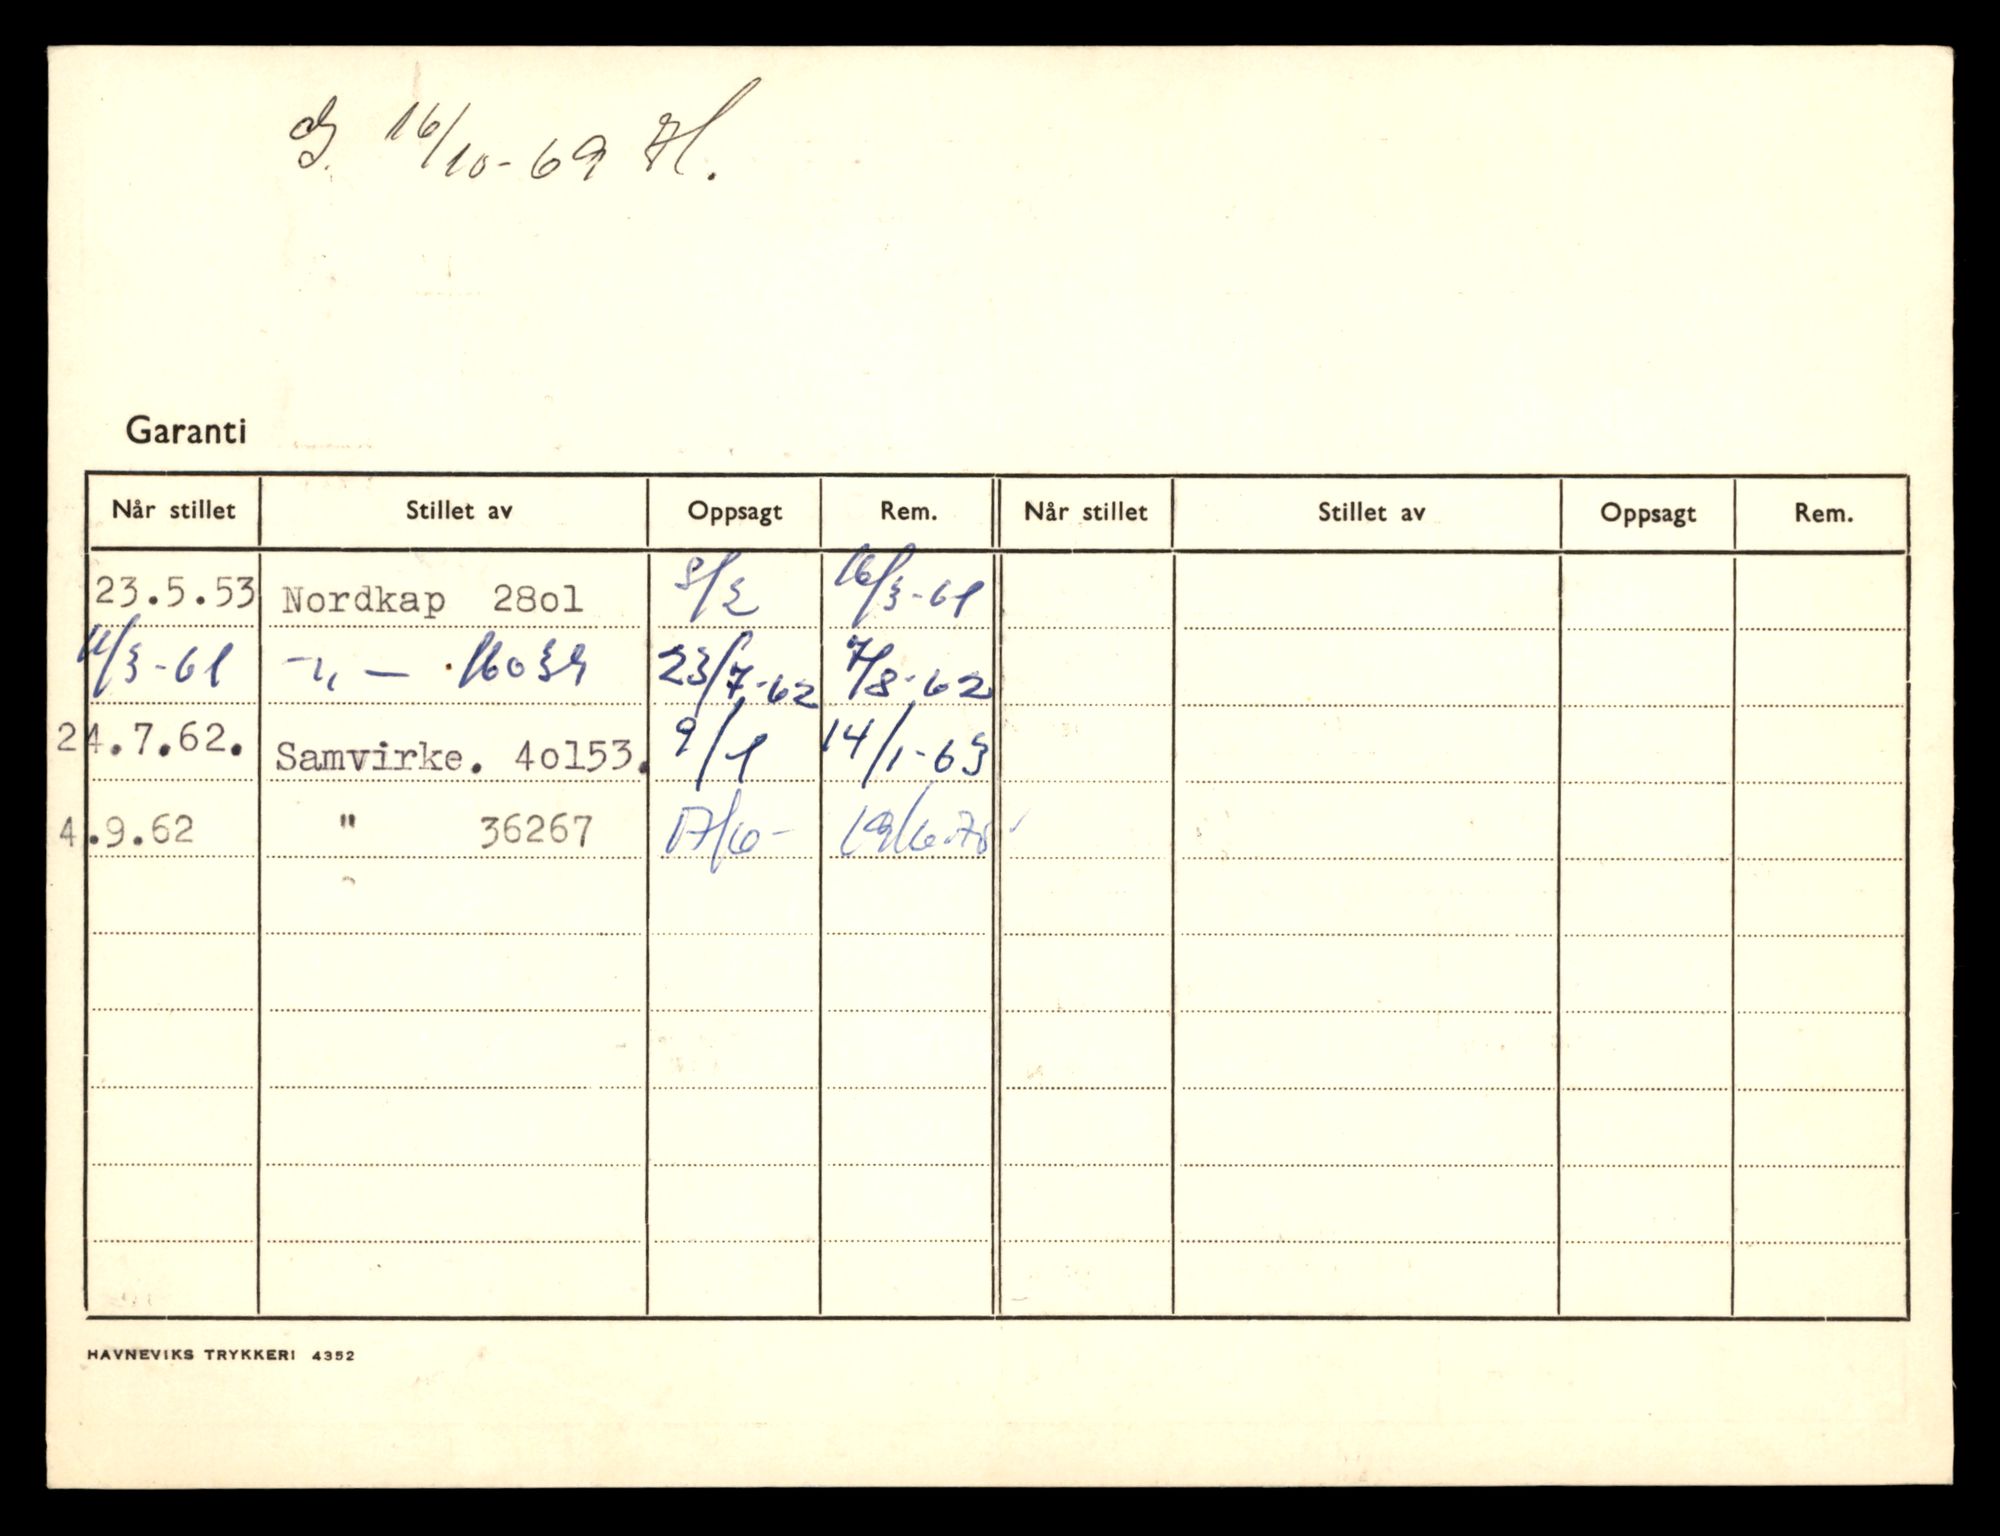 16/10-69 H.
Garanti
Når stillet Stillet av Oppsagt Rem. Når stillet Stillet av Oppsagt Rem.
23.5.53 Nordkap 28o1 16/3-61
11/3-61 -"- 16039 23/7-62 7/8-62
24.7.62. Samvirke. 4o153. 9/1 14/1-63
4.9.62 " 36267
HAVNEVIKS TRYKKERI 4352